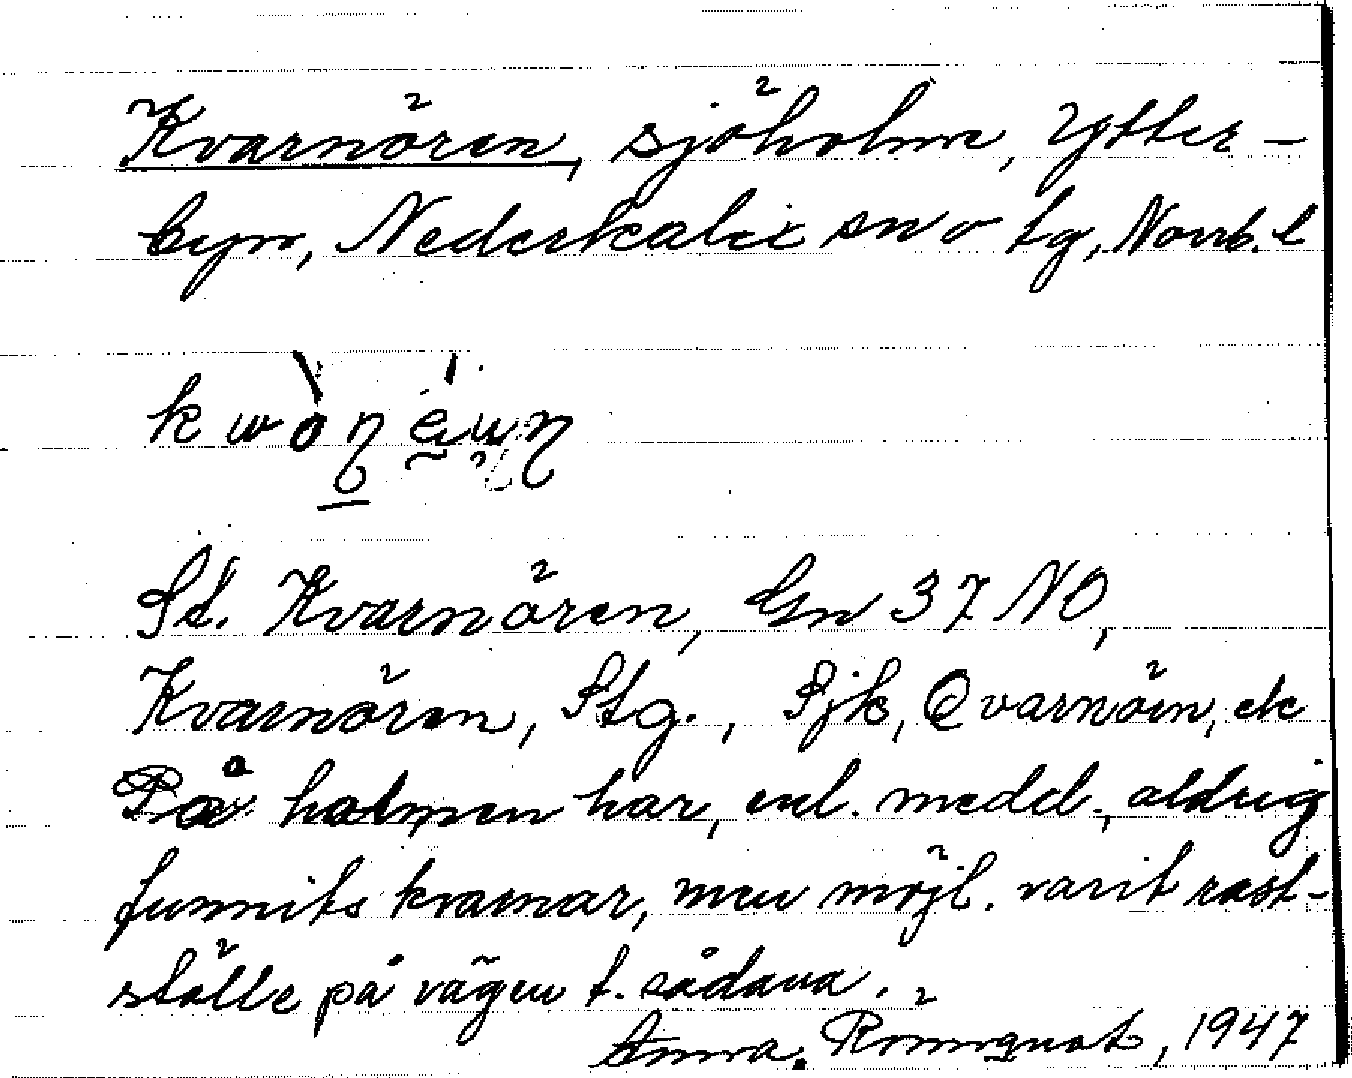 Kvarnören, sjöholme, Ytter-
byn, Nederkalix sn o tg, Norrb. l
Sd. Kvarnören, Gn 37 NO,
Kvarnören, Stg., Sjk, Qvarnörn, ek
På holmen har, enl. medd., aldrig
funnits kvarnar, men möjl. varit rast-
ställe på vägen t. sådana.
Anna Rönnqvist, 1947